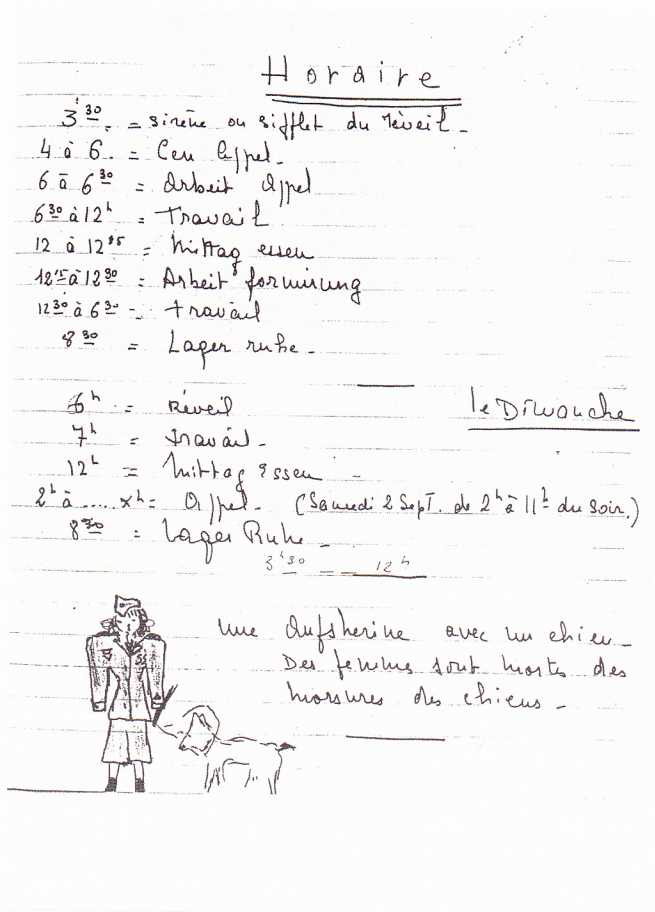 Horaire
3 30. = sirène ou sifflet du réveil -
4 à 6. = Ceu Appel -
6 à 6 30 = Arbeit Appel
6 30 à 12 h = Travail
12 à 12 15 = Mittag essen
12 15 à 12 30 = Arbeit's formirung
12 30 à 6 30 = travail
8 30 = Lager ruhe -
le Dimanche
6 h = Réveil
7 h = travail -
12 h = Mittag Essen -
2 h à .... x h = Appel - (Samedi 2 Sept. de 2 h à 11 h du soir.)
8 30 = Lager Ruhe -
3 h 30 — — 12 h
Une Aufsherine avec un chien -
Des femmes sont mortes des
morsures des chiens -